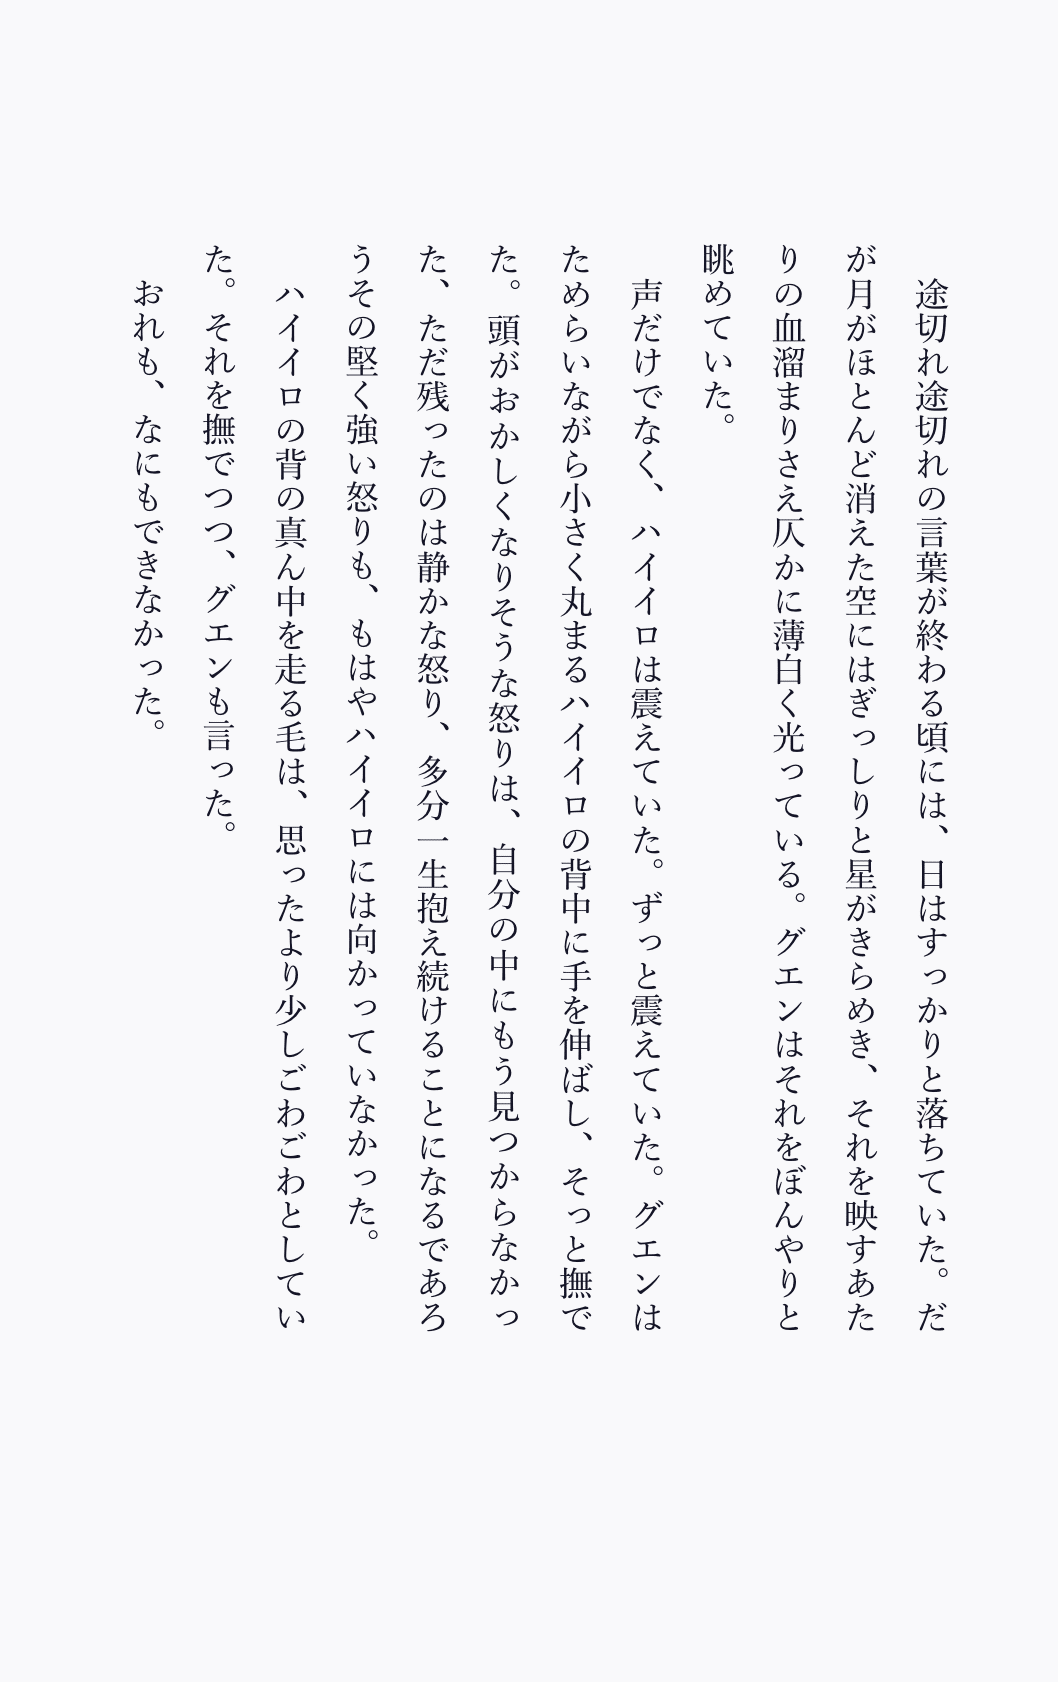 途切れ途切れの言葉が終わる頃には、日はすっかりと落ちていた。だ
が月がほとんど消えた空にはぎっしりと星がきらめき、それを映すあた
りの血溜まりさえ仄かに薄白く光っている。グエンはそれをぼんやりと
眺めていた。
声だけでなく、ハイイロは震えていた。ずっと震えていた。グエンは
ためらいながら小さく丸まるハイイロの背中に手を伸ばし、そっと撫で
た。頭がおかしくなりそうな怒りは、自分の中にもう見つからなかっ
た、ただ残ったのは静かな怒り、多分一生抱え続けることになるであろ
うその堅く強い怒りも、もはやハイイロには向かっていなかった。
ハイイロの背の真ん中を走る毛は、思ったより少しごわごわとしてい
た。それを撫でつつ、グエンも言った。
おれも、なにもできなかった。